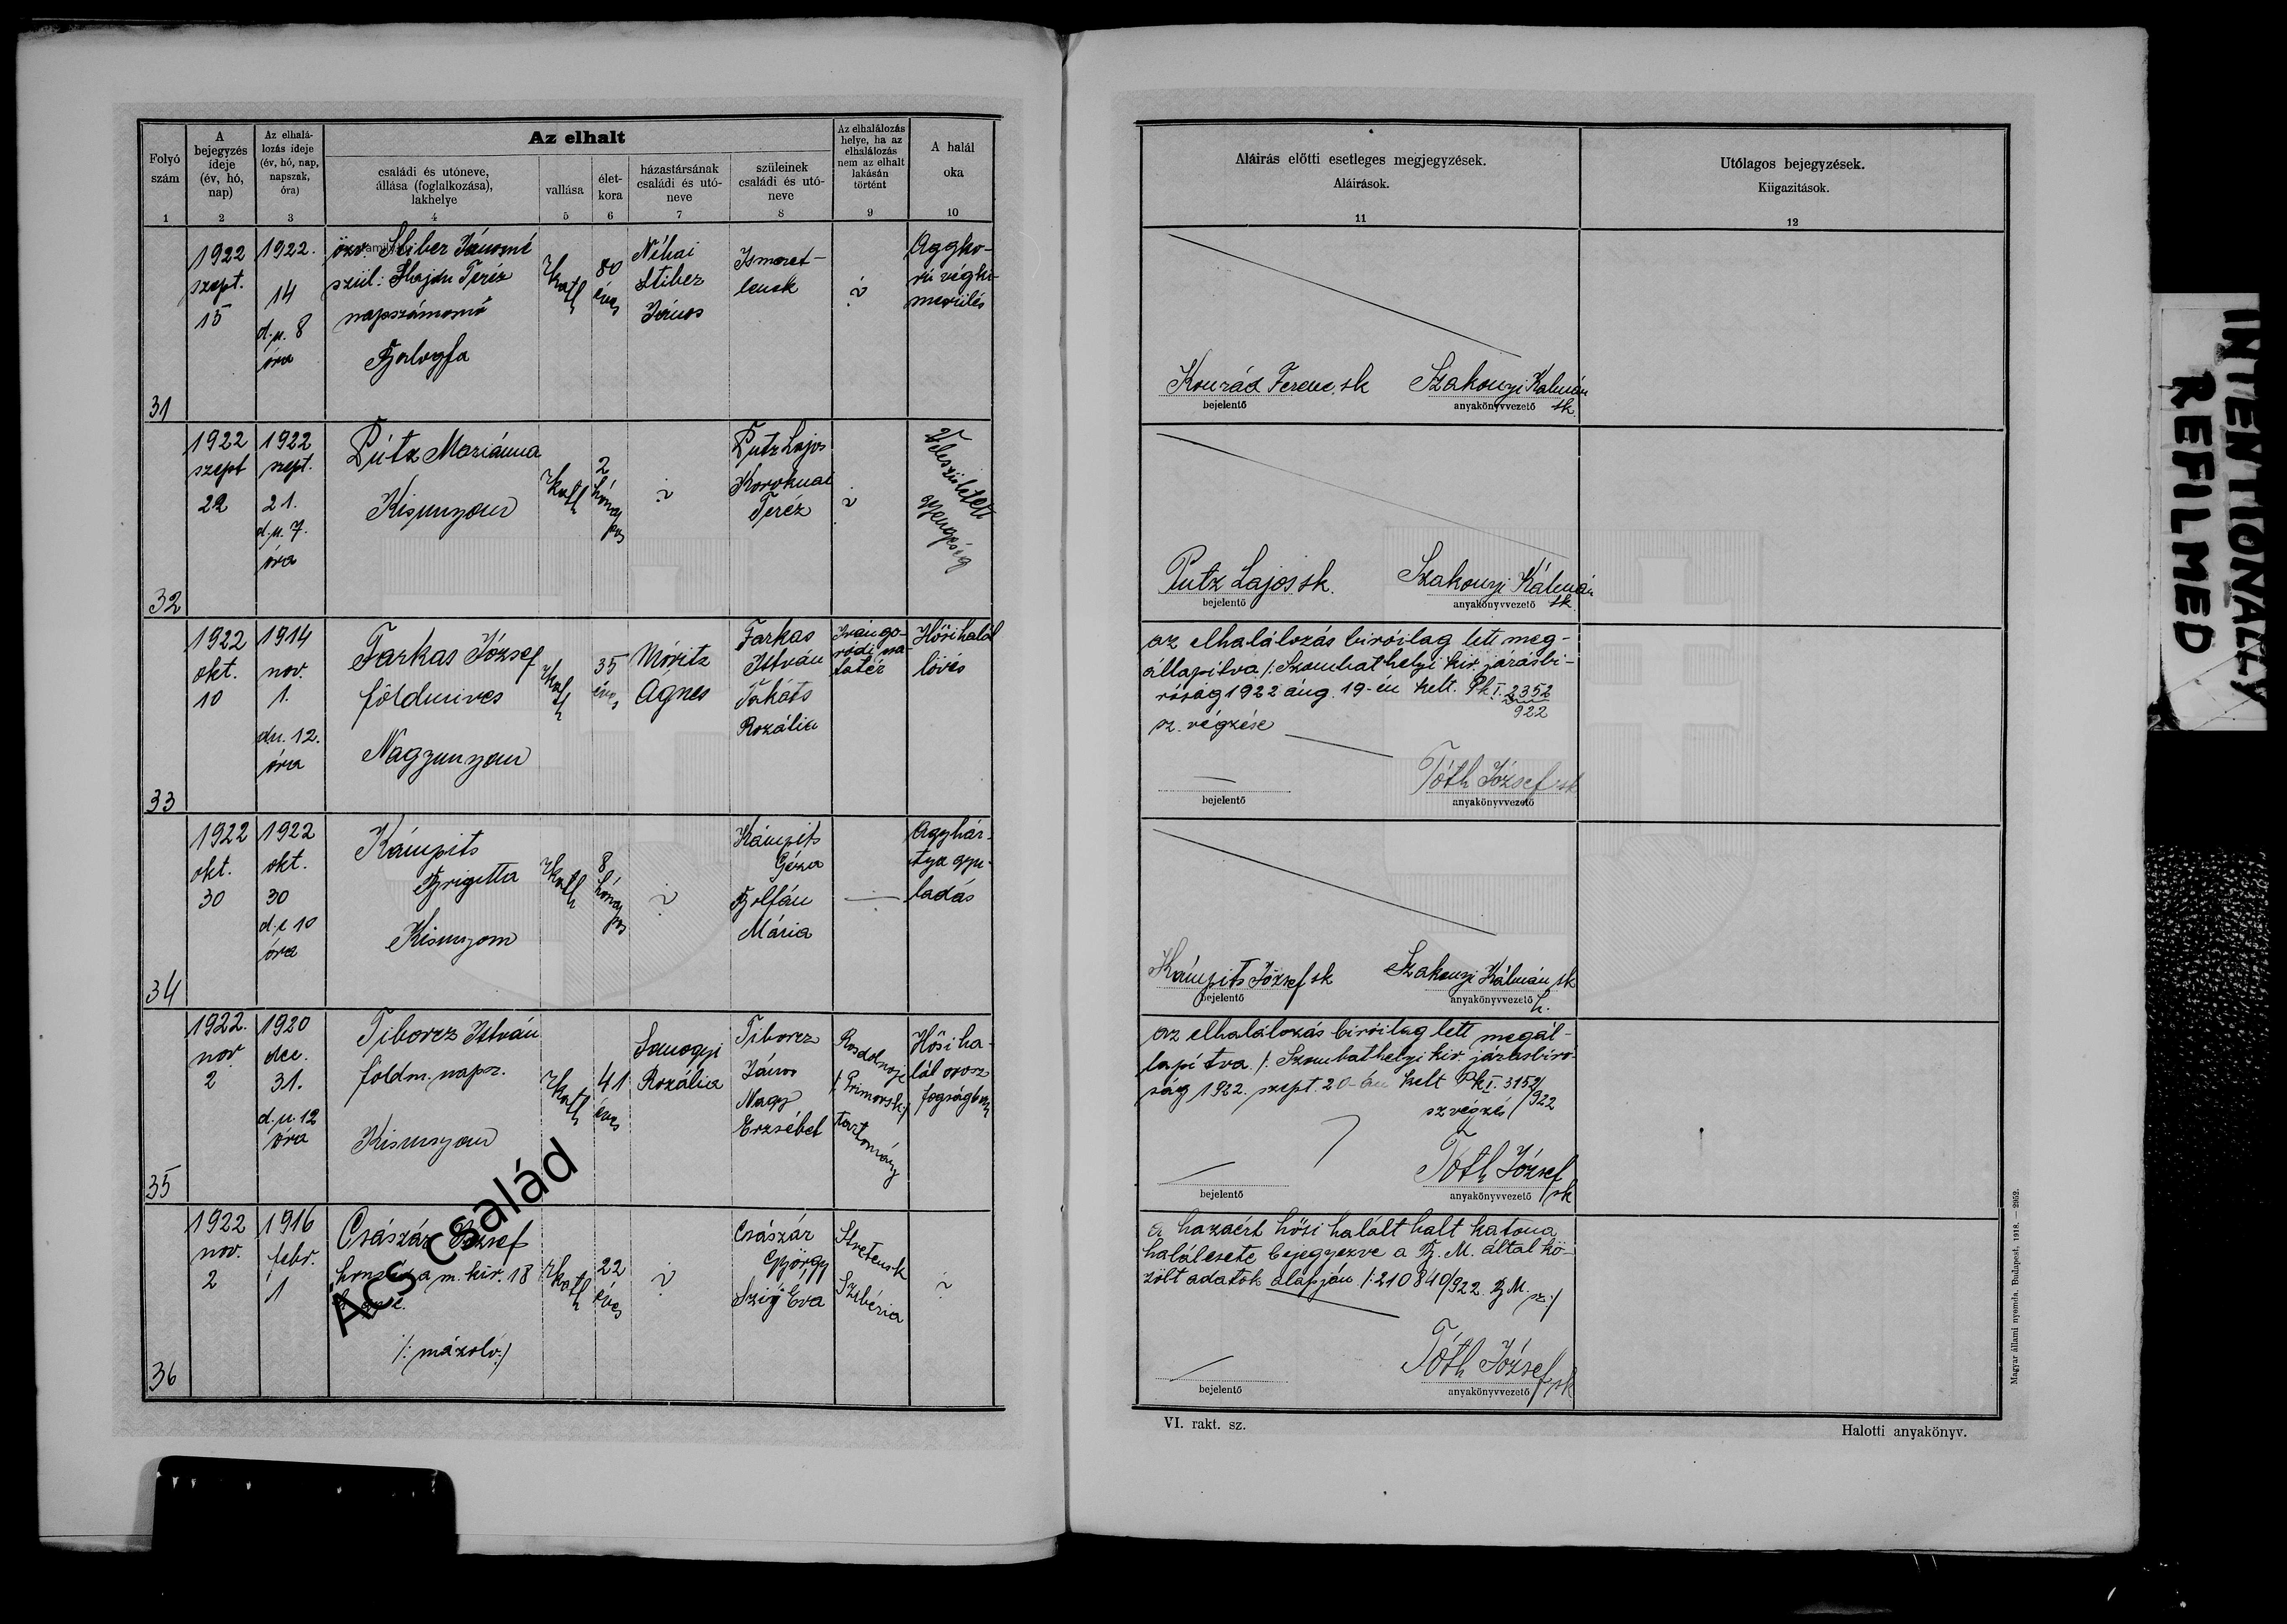 Az elhalt
Folyó
szám
A
bejegyzés
ideje
(év, hó,
nap)
Az elhalá-
lozás ideje
(év, hó, nap,
napszak,
óra)
családi és utóneve,
állása (foglalkozása),
lakhelye
vallása
élet-
kora
házastársának
családi és utó-
neve
szüleinek
családi és utó-
neve
Az elhalálozás
helye, ha az
elhalálozás
nem az elhalt
lakásán
történt
A halál
oka
1
2
3
4
5
6
7
8
9
10
31
1922
szept.
15
1922.
14
d.u. 8
óra
özv. Stiber Jánosné
szül: Hajdu Teréz
napszámosnő
Balogfa
rkath
80
éves
Néhai
Stiber
János
Ismeret-
lenek
Aggko-
ri végki-
merülés
32
1922
szept
22
1922
szept.
21.
d.u. 7.
óra
Pútz Mariánna
Kisunyom
rkath
2
hónapos
Putz Lajos
Koroknai
Teréz
Veleszületett
gyengeség
33
1922
okt.
10
1914
nov.
1.
du. 12.
óra
Farkas József
földmives
Nagyunyom
rkath
35
éves
Móritz
Ágnes
Farkas
István
Takáts
Rozália
Ivángo-
rodi csa-
tatér
Hősi halál
lövés
34
1922
okt.
30
1922
okt.
30
d.e 10
óra
Kámpits
Brigitta
Kisunyom
rkath
8
hónapos
Kámpits
Géza
Bolfán
Mária
Agyhár-
tya gyu-
ladás
35
1922.
nov
2
1920
dec.
31.
d.u. 12
óra
Tiborcz István
földm. napsz.
Kisunyom
rkath
41
éves
Somogyi
Rozália
Tiborcz
János
Nagy
Erzsébet
Rosdolnoje
/: Primorsk:/
tartomány
Hősi ha-
lál orosz
fogságban
36
1922
nov.
2
1916
febr.
1
Császár József
honvéd a m. kir. 18
/: mázoló:/
rkath
22
éves
Császár
György
Szíjj Éva
Stretensk
Szibéria
Ács család
Aláírás előtti esetleges megjegyzések.
Aláírások.
11
Utólagos bejegyzések.
Kiigazítások.
12
Konrád Ferenc sk Szakonyi Kálmán
bejelentő anyakönyvvezető sk.
Putz Lajos sk. Szakonyi Kálmán
bejelentő anyakönyvvezető sk
az elhalálozás biróilag lett meg-
állapitva /: Szombathelyi kir. járásbi-
róság 1922 aug. 19-én kelt. Pk I. 2352
922
sz. végzése
Tóth József sk
bejelentő anyakönyvvezető
Kámpits József sk Szakonyi Kálmán sk
bejelentő anyakönyvvezető h.
az elhalálozás biróilag lett megál-
lapítva /: Szombathelyi kir. járásbiró-
ság 1922. szept. 20-án kelt Pk I. 3152/922
sz végzés/
Tóth József
bejelentő anyakönyvvezető sk
a hazaért hősi halált halt katona
halálesete bejegyezve a B. M. által kö-
zölt adatok alapján /: 210840/922. B M. sz:/
Tóth József sk
bejelentő anyakönyvvezető
VI. rakt. sz.
Halotti anyakönyv.
Magyar állami nyomda. Budapest, 1918. — 2952.
INTENTIONALLY
REFILMED